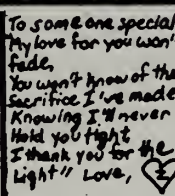 To someone special
My love for you won't
fade,
You won't know of the
Sacrifice I've made
Knowing I'll never
Hold you tight
I thank you for the
Light" Love,